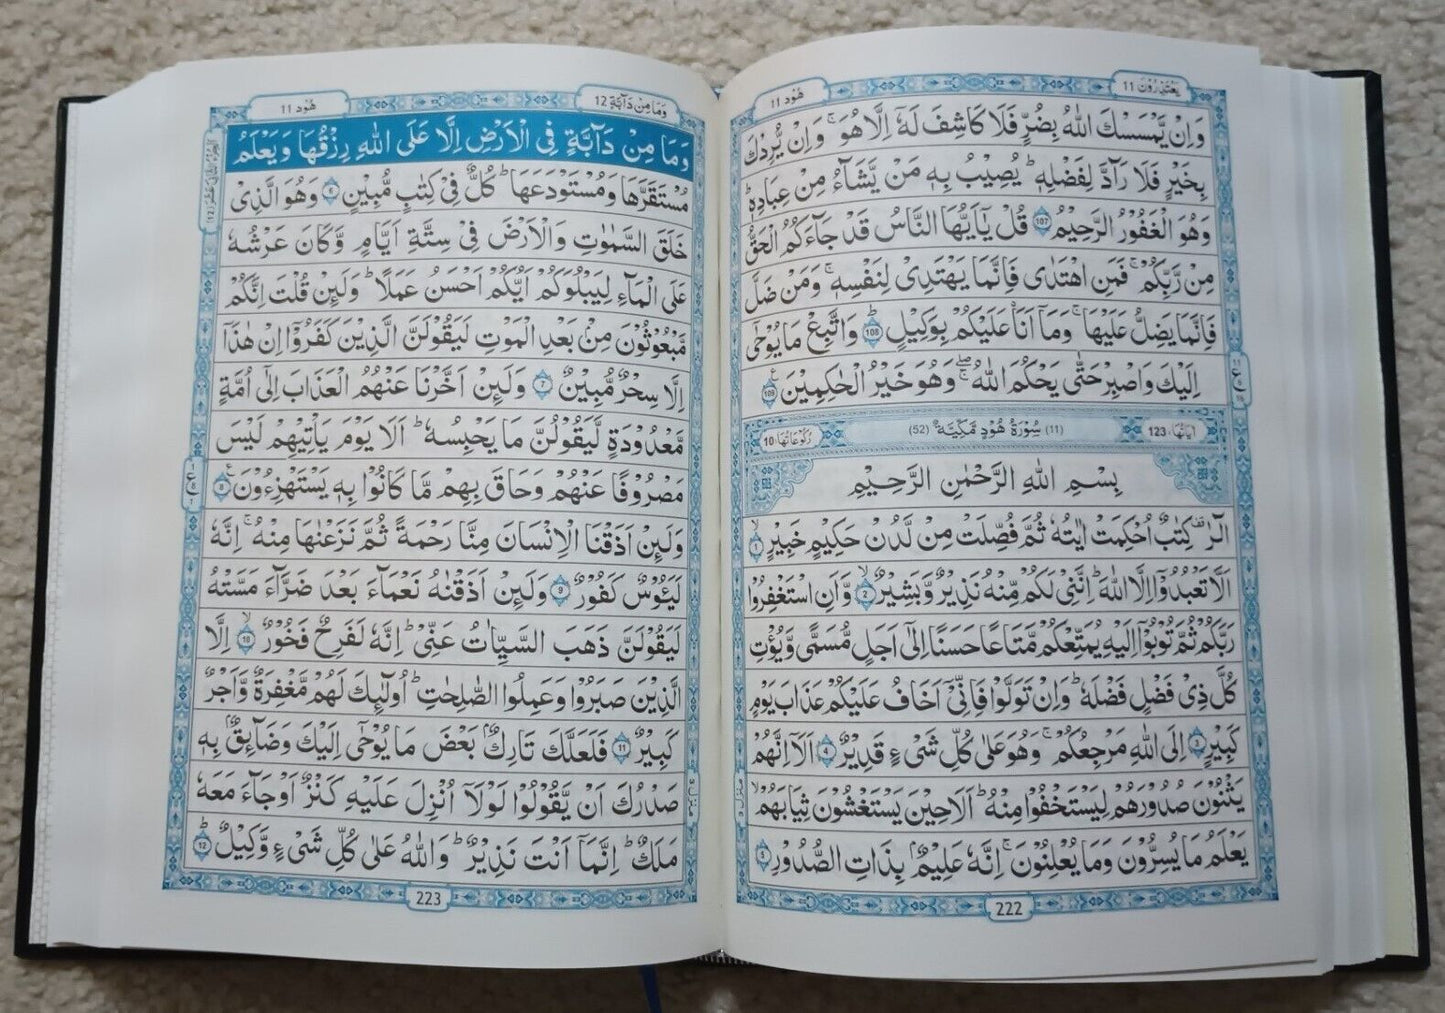 يَعْتَذِرُوْنَ 11
هُوْد 11
وَاِنْ يَّمْسَسْكَ اللّٰهُ بِضُرٍّ فَلَا كَاشِفَ لَهٗۤ اِلَّا هُوَ ۚ وَاِنْ يُّرِدْكَ
بِخَيْرٍ فَلَا رَآدَّ لِفَضْلِهٖ ؕ يُصِيْبُ بِهٖ مَنْ يَّشَآءُ مِنْ عِبَادِهٖ ؕ
وَهُوَ الْغَفُوْرُ الرَّحِيْمُ 107 قُلْ يٰۤاَيُّهَا النَّاسُ قَدْ جَآءَكُمُ الْحَقُّ
مِنْ رَّبِّكُمْ ۚ فَمَنِ اهْتَدٰى فَاِنَّمَا يَهْتَدِىْ لِنَفْسِهٖ ۚ وَمَنْ ضَلَّ
فَاِنَّمَا يَضِلُّ عَلَيْهَا ۚ وَمَاۤ اَنَا عَلَيْكُمْ بِوَكِيْلٍ ؕ 108 وَاتَّبِعْ مَا يُوْحٰۤى
اِلَيْكَ وَاصْبِرْ حَتّٰى يَحْكُمَ اللّٰهُ ۖۚ وَهُوَ خَيْرُ الْحٰكِمِيْنَ 109
اٰيَاتُهَا: 123 (11) سُوْرَةُ هُوْدٍ مَّكِّيَّةٌ (52) رُكُوْعَاتُهَا 10
بِسْمِ اللّٰهِ الرَّحْمٰنِ الرَّحِيْمِ
الٓرٰ ۟ كِتٰبٌ اُحْكِمَتْ اٰيٰتُهٗ ثُمَّ فُصِّلَتْ مِنْ لَّدُنْ حَكِيْمٍ خَبِيْرٍ ۙ 1
اَلَّا تَعْبُدُوْۤا اِلَّا اللّٰهَ ؕ اِنَّنِىْ لَكُمْ مِّنْهُ نَذِيْرٌ وَّبَشِيْرٌ ۙ 2 وَّاَنِ اسْتَغْفِرُوْا
رَبَّكُمْ ثُمَّ تُوْبُوْۤا اِلَيْهِ يُمَتِّعْكُمْ مَّتَاعًا حَسَنًا اِلٰٓى اَجَلٍ مُّسَمًّى وَّيُؤْتِ
كُلَّ ذِىْ فَضْلٍ فَضْلَهٗ ؕ وَاِنْ تَوَلَّوْا فَاِنِّىْۤ اَخَافُ عَلَيْكُمْ عَذَابَ يَوْمٍ
كَبِيْرٍ 3 اِلَى اللّٰهِ مَرْجِعُكُمْ ۚ وَهُوَ عَلٰى كُلِّ شَىْءٍ قَدِيْرٌ 4 اَلَاۤ اِنَّهُمْ
يَثْنُوْنَ صُدُوْرَهُمْ لِيَسْتَخْفُوْا مِنْهُ ؕ اَلَا حِيْنَ يَسْتَغْشُوْنَ ثِيَابَهُمْ ۙ
يَعْلَمُ مَا يُسِرُّوْنَ وَمَا يُعْلِنُوْنَ ۚ اِنَّهٗ عَلِيْمٌۢ بِذَاتِ الصُّدُوْرِ 5
222
وَمَا مِنْ دَآبَّةٍ 12
هُوْد 11
وَمَا مِنْ دَآبَّةٍ فِى الْاَرْضِ اِلَّا عَلَى اللّٰهِ رِزْقُهَا وَيَعْلَمُ
مُسْتَقَرَّهَا وَمُسْتَوْدَعَهَا ؕ كُلٌّ فِىْ كِتٰبٍ مُّبِيْنٍ 6 وَهُوَ الَّذِىْ
خَلَقَ السَّمٰوٰتِ وَالْاَرْضَ فِىْ سِتَّةِ اَيَّامٍ وَّكَانَ عَرْشُهٗ
عَلَى الْمَآءِ لِيَبْلُوَكُمْ اَيُّكُمْ اَحْسَنُ عَمَلًا ؕ وَلَئِنْ قُلْتَ اِنَّكُمْ
مَّبْعُوْثُوْنَ مِنْۢ بَعْدِ الْمَوْتِ لَيَقُوْلَنَّ الَّذِيْنَ كَفَرُوْۤا اِنْ هٰذَاۤ
اِلَّا سِحْرٌ مُّبِيْنٌ 7 وَلَئِنْ اَخَّرْنَا عَنْهُمُ الْعَذَابَ اِلٰٓى اُمَّةٍ
مَّعْدُوْدَةٍ لَّيَقُوْلُنَّ مَا يَحْبِسُهٗ ؕ اَلَا يَوْمَ يَاْتِيْهِمْ لَيْسَ
مَصْرُوْفًا عَنْهُمْ وَحَاقَ بِهِمْ مَّا كَانُوْا بِهٖ يَسْتَهْزِءُوْنَ 8
وَلَئِنْ اَذَقْنَا الْاِنْسَانَ مِنَّا رَحْمَةً ثُمَّ نَزَعْنٰهَا مِنْهُ ۚ اِنَّهٗ
لَيَئُوْسٌ كَفُوْرٌ 9 وَلَئِنْ اَذَقْنٰهُ نَعْمَآءَ بَعْدَ ضَرَّآءَ مَسَّتْهُ
لَيَقُوْلَنَّ ذَهَبَ السَّيِّاٰتُ عَنِّىْ ؕ اِنَّهٗ لَفَرِحٌ فَخُوْرٌ ۙ 10 اِلَّا
الَّذِيْنَ صَبَرُوْا وَعَمِلُوا الصّٰلِحٰتِ ؕ اُولٰٓئِكَ لَهُمْ مَّغْفِرَةٌ وَّاَجْرٌ
كَبِيْرٌ 11 فَلَعَلَّكَ تَارِكٌۢ بَعْضَ مَا يُوْحٰۤى اِلَيْكَ وَضَآئِقٌۢ بِهٖ
صَدْرُكَ اَنْ يَّقُوْلُوْا لَوْلَاۤ اُنْزِلَ عَلَيْهِ كَنْزٌ اَوْ جَآءَ مَعَهٗ
مَلَكٌ ؕ اِنَّمَاۤ اَنْتَ نَذِيْرٌ ؕ وَاللّٰهُ عَلٰى كُلِّ شَىْءٍ وَّكِيْلٌ ؕ 12
223